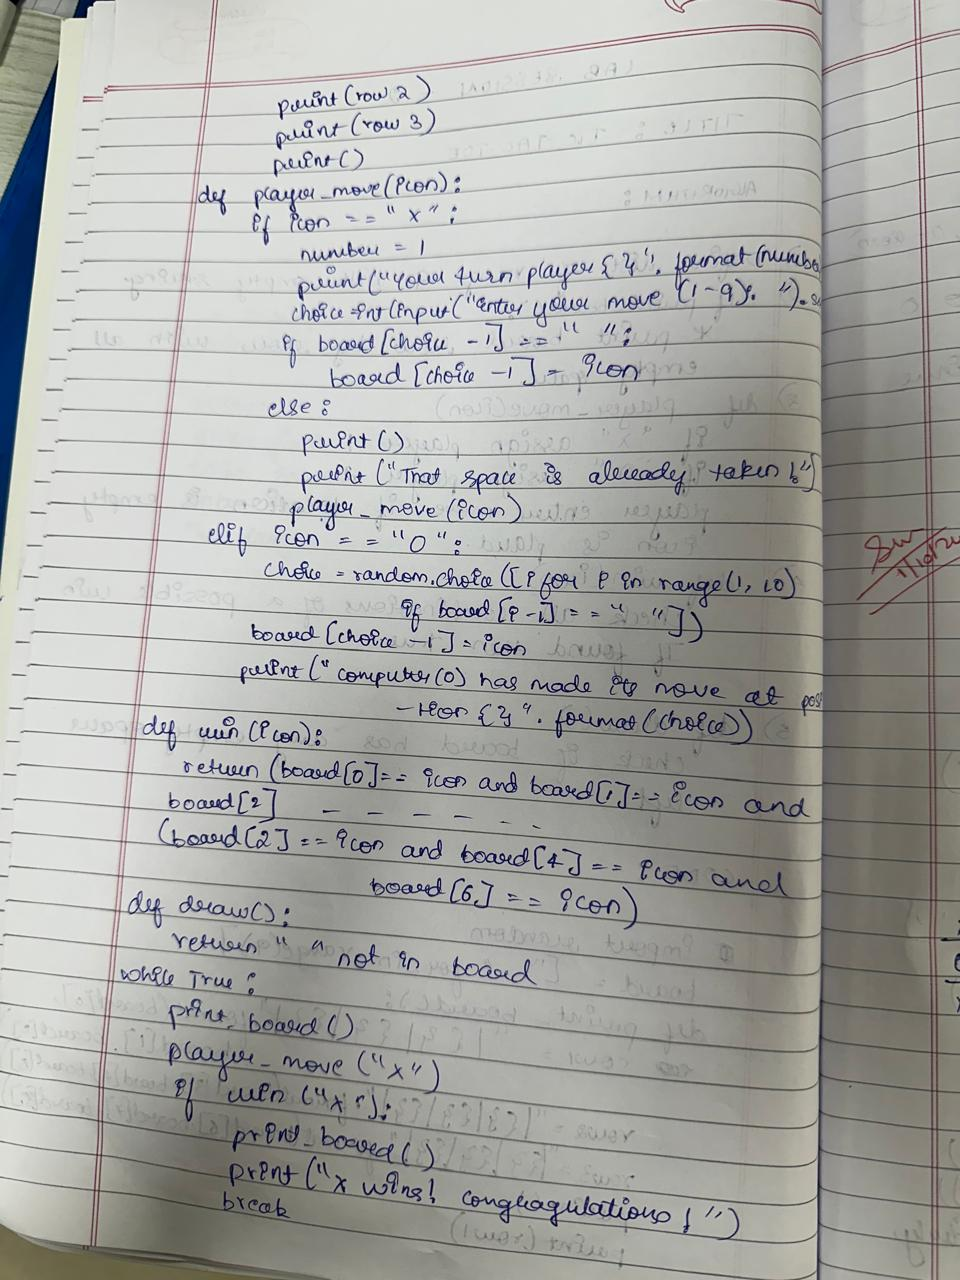 print(row 2)
print(row 3)
print()
def player_move(icon):
if icon == "x":
number = 1
print("your turn player { }". format(number
choice = int(input("enter your move (1-9): ").
if board[choice -1] == " ":
board [choice -1] = icon
else:
print()
print ("That space is already taken!")
player_move(icon)
elif icon == "0":
choice = random.choice([i for i in range(1, 10)
if board [i -1] == " "])
board [choice -1] = icon
print (" computer (0) has made its move at posi
-tion { }". format(choice))
def win (icon):
return (board[0] == icon and board[1] == icon and
board[2] - - - - - -
(board[2] == icon and board[4] == icon and
board[6] == icon)
def draw():
return " " not in board
while True:
print_board()
player_move ("x")
if win ("x"):
print_board()
print ("x wins! congragulations!")
break